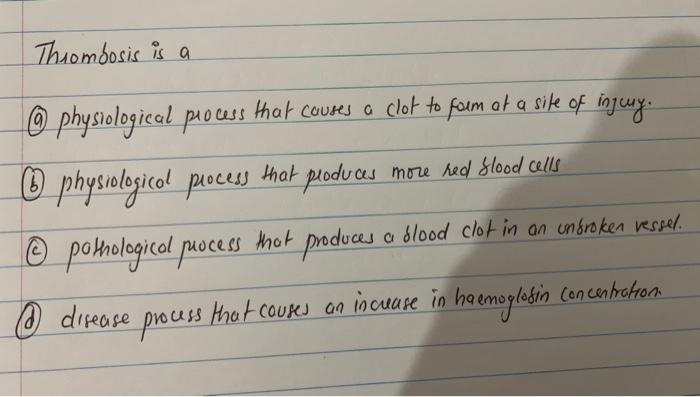 Thrombosis is a
(a) physiological process that causes a clot to form at a site of injury.
(b) physiological process that produces more red blood cells
(c) pathological process that produces a blood clot in an unbroken vessel.
(d) disease process that causes an increase in haemoglobin concentration.